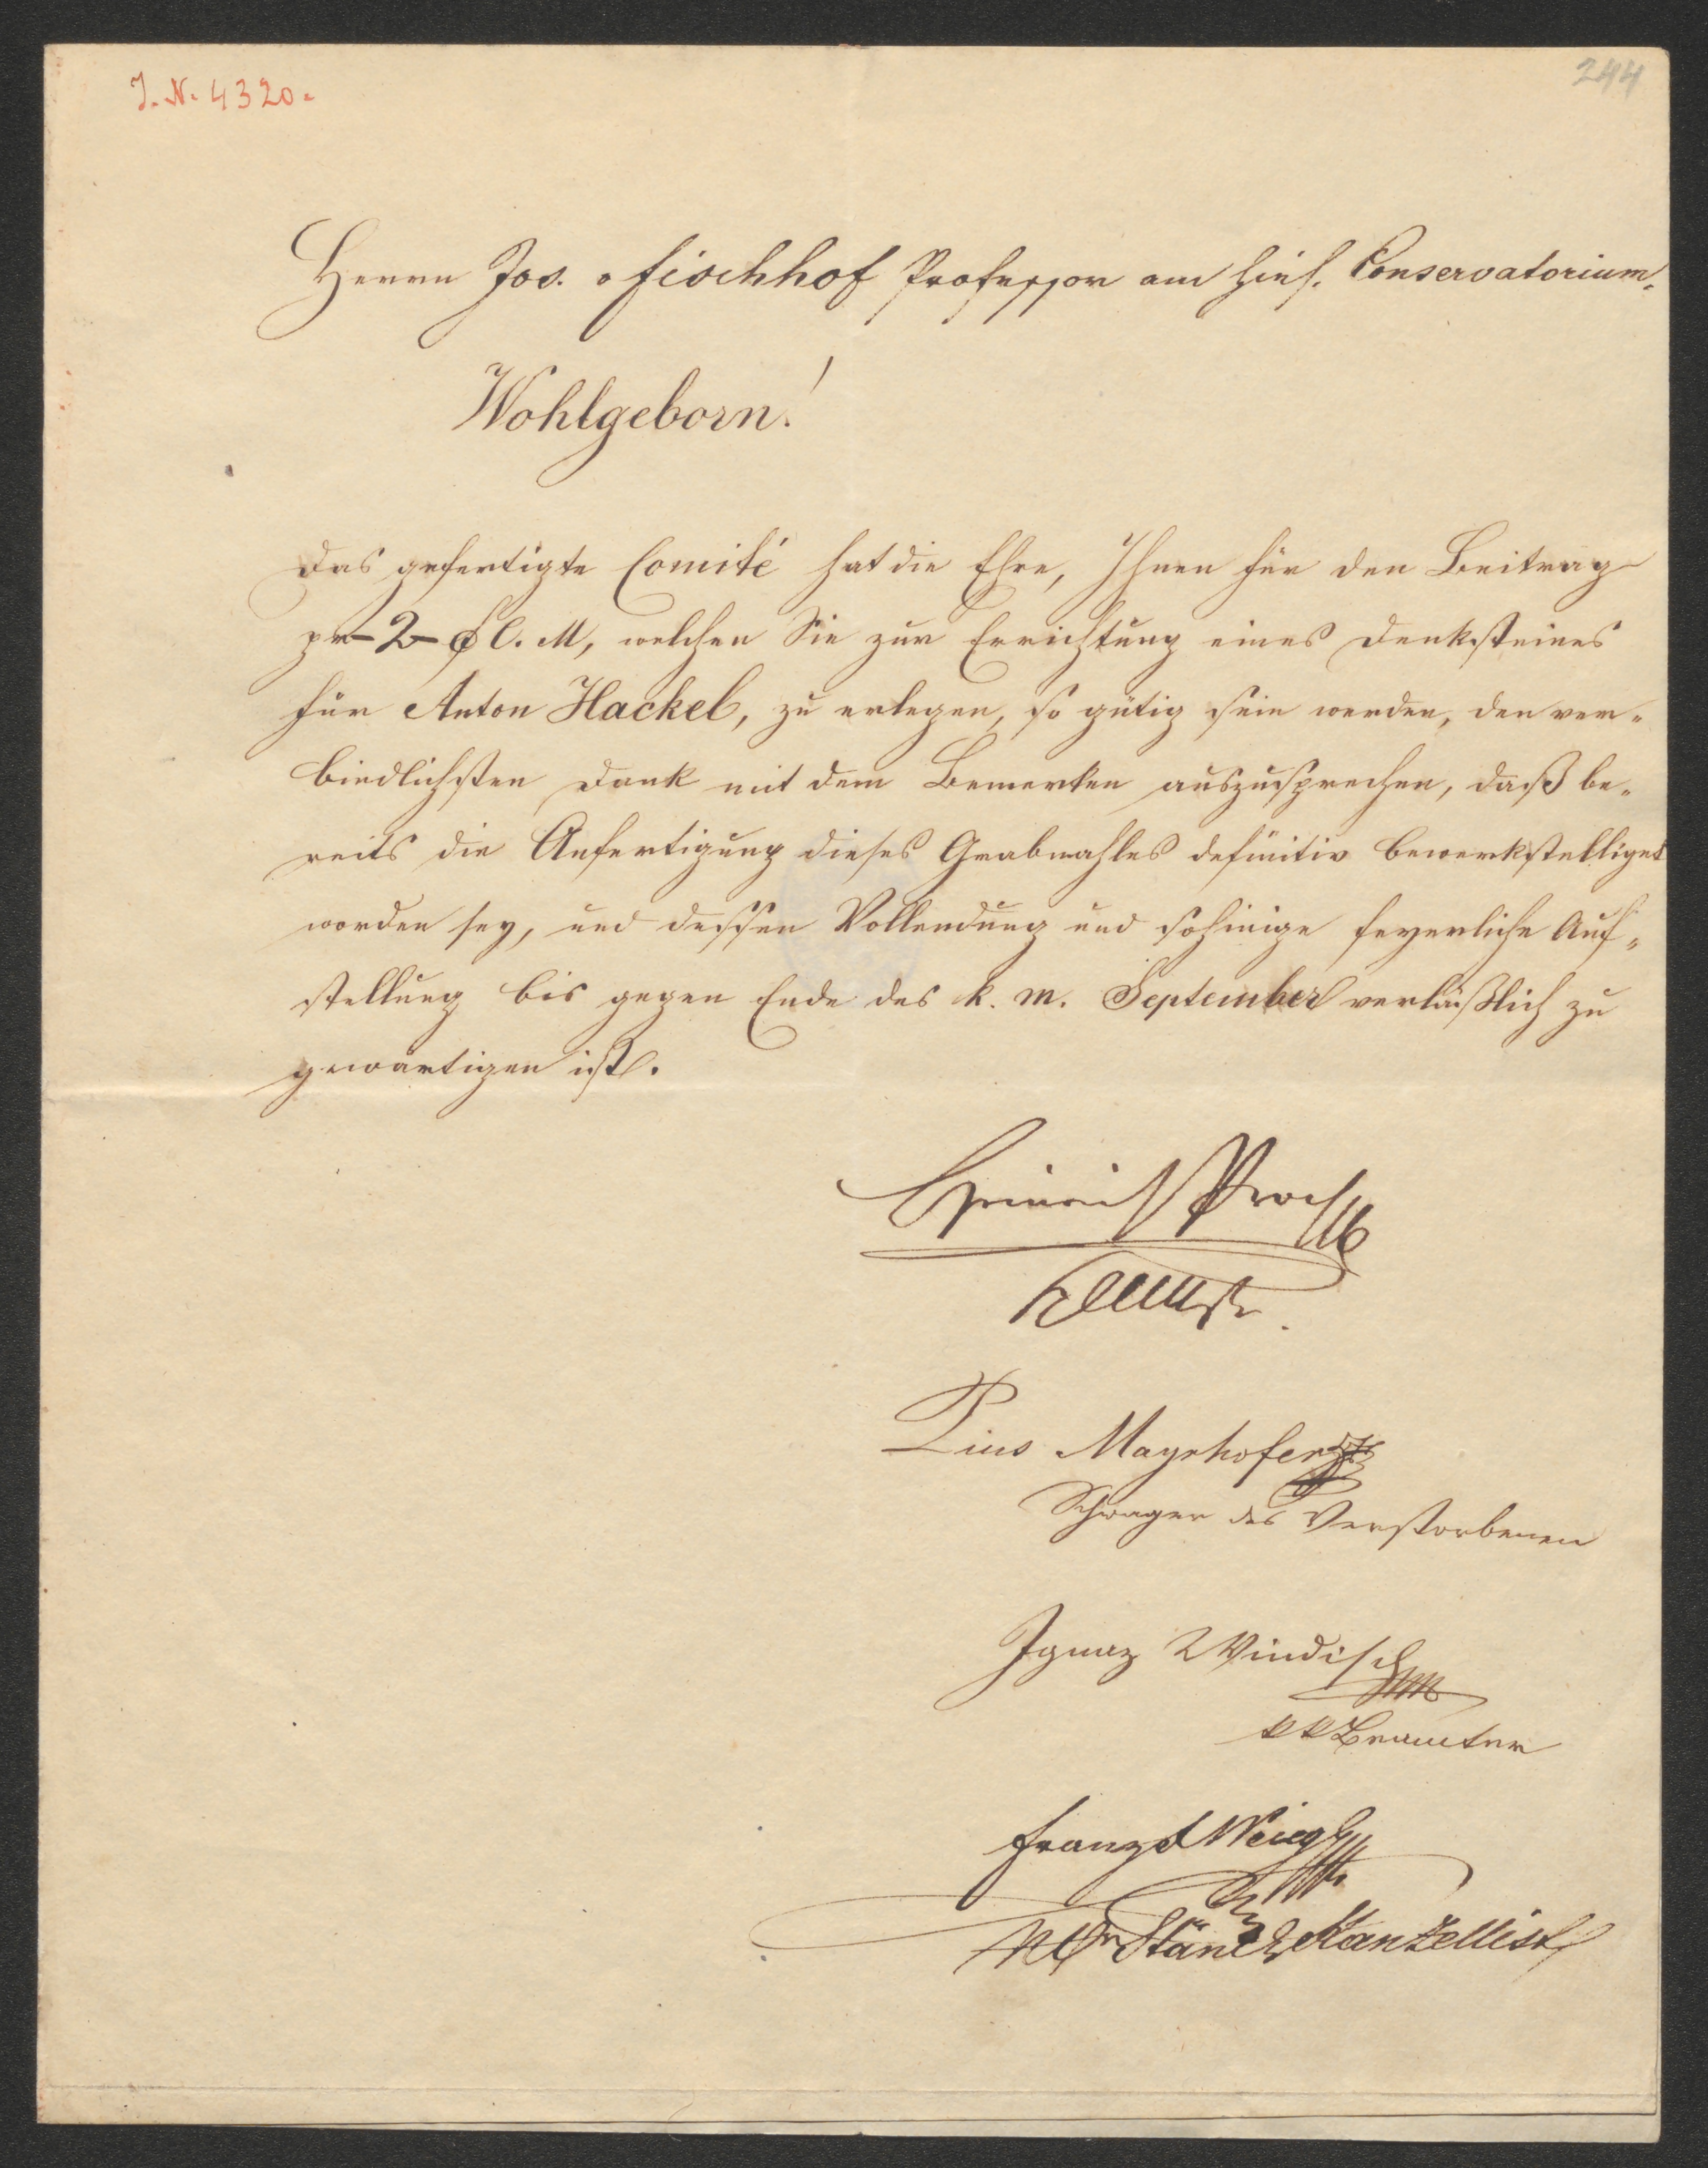 J. N. 4320.
244
Herrn Jos. Fischhof Professor am hies. Conservatorium.
Wohlgeborn!
Das gefertigte Comité hat die Ehre, Ihnen für den Beitrag
pr – 2 – f C. M, welchen Sie zur Errichtung eines Denksteines
für Anton Hackel, zu erlegen, so gütig sein werden, den ver„
bindlichsten Dank mit dem Bemerken auszusprechen, daß be„
reits die Anfertigung dieses Grabmahles definitiv bewerkstelliget
worden sey, und dessen Vollendung und sohinige feyerliche Auf„
stellung bis gegen Ende des k. M. September verläßlich zu
gewärtigen ist.
Heinrich Proch
Pius Mayrhofer
Schwager des Verstorbenen
Ignaz Windisch
kk Beamter
Franz Weigl
Ständ Kanzellist